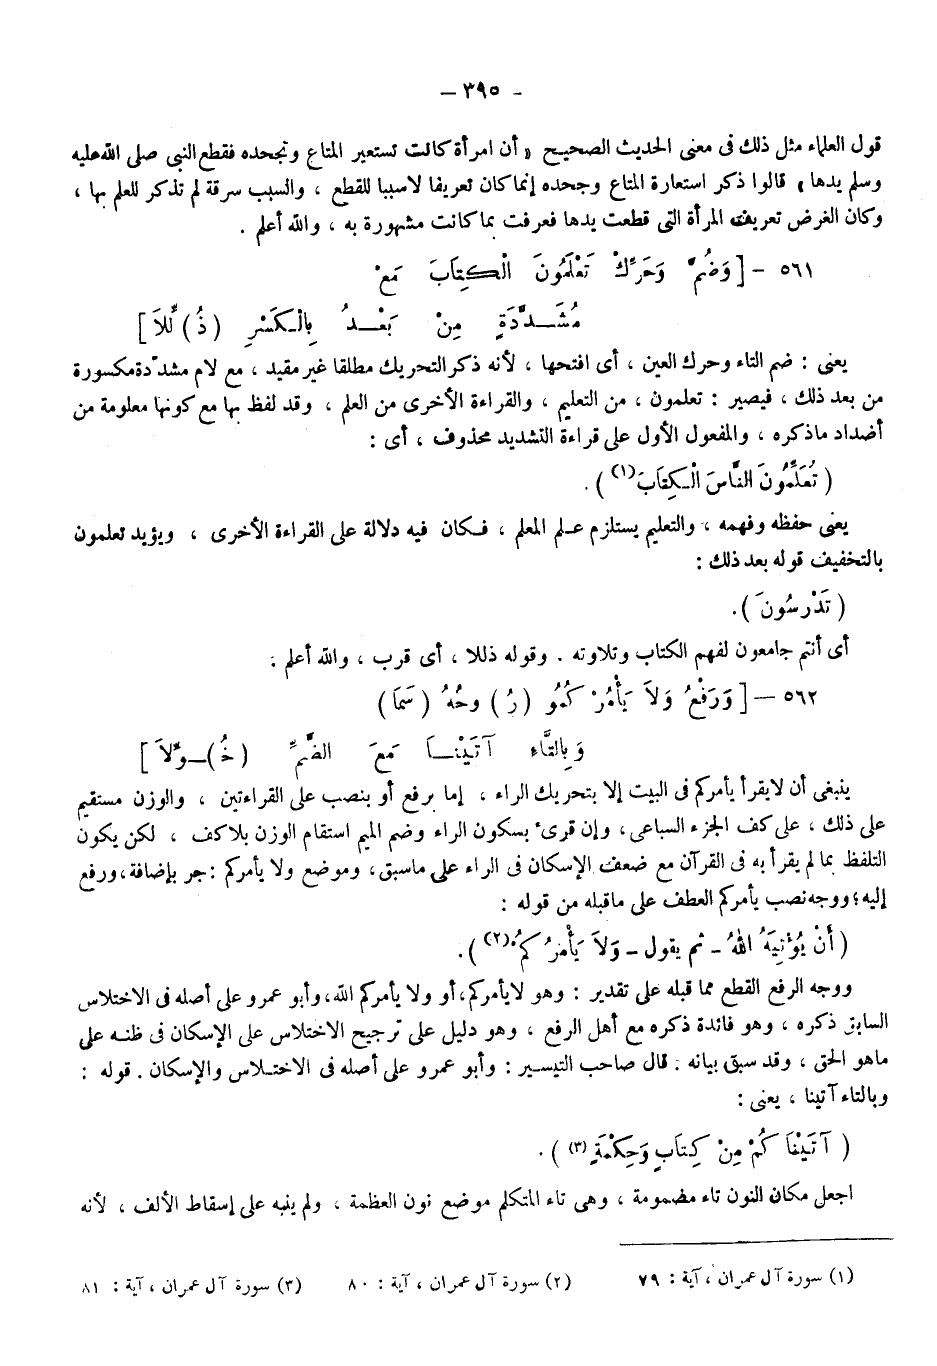 - ٣٩٥ —
قول العلماء مثل ذلك فى معنى الحديث الصحيح « أن امرأة كانت تستعير المتاع وتجحده فقطع النبى صلى الله عليه
وسلم يدها » قالوا ذكر استعارة المتاع وجحده إنما كان تعريفا لاسببا للقطع ، والسبب سرقة لم تذكر للعلم بها ،
وكان الغرض تعريف المرأة التى قطعت يدها فعرفت بما كانت مشهورة به ، والله أعلم .
٥٦١ - [ وَضُمَّ وَحَرِّكْ تَعْلَمُونَ الْكِتَابَ مَعْ
مُشَدَّدَةٍ مِنْ بَعْدُ بِالْكَسْرِ (ذُ) لِّلاَ ]
يعنى : ضم التاء وحرك العين ، أى افتحها ، لأنه ذكر التحريك مطلقا غير مقيد ، مع لام مشدّدة مكسورة
من بعد ذلك ، فيصير : تعلمون ، من التعليم ، والقراءة الأخرى من العلم ، وقد لفظ بها مع كونها معلومة من
أضداد ماذكره ، والمفعول الأول على قراءة التشديد محذوف ، أى :
( تُعَلِّمُونَ النَّاسَ الْكِتَابَ (١) ) .
يعنى حفظه وفهمه ، والتعليم يستلزم علم المعلم ، فكان فيه دلالة على القراءة الأخرى ، ويؤيد تعلمون
بالتخفيف قوله بعد ذلك :
( تَدْرسُونَ ) .
أى أنتم جامعون لفهم الكتاب وتلاوته . وقوله ذللا ، أى قرب ، والله أعلم :
٥٦٢ — [ وَرَفْعُ وَلاَ يَأْمُرْ كُمُو (رُ) وحُهُ (سَمَا)
وَبِالتَّاءِ آتَيْنَا مَعَ الضَّمِّ (خُ)ـوِّلاَ ]
ينبغى أن لايقرأ يأمركم فى البيت إلا بتحريك الراء ، إما برفع أو بنصب على القراءتين ، والوزن مستقيم
على ذلك ، على كف الجزء السباعى، وإن قرئ بسكون الراء وضم الميم استقام الوزن بلا كف ، لكن يكون
التلفظ بما لم يقرأ به فى القرآن مع ضعف الإسكان فى الراء على ماسبق، وموضع ولا يأمركم : جر بإضافة، ورفع
إليه؛ ووجه نصب يأمركم العطف على ماقبله من قوله :
( أَنْ يُؤْتِيَهُ اللهُ - ثم يقول - وَلاَ يَأْمُرُ كُمْ (٢) ) .
ووجه الرفع القطع مما قبله على تقدير : وهو لايأمركم، أو ولا يأمركم الله، وأبو عمرو على أصله فى الاختلاس
السابق ذكره ، وهو فائدة ذكره مع أهل الرفع ، وهو دليل على ترجيح الاختلاس على الإسكان فى ظنه على
ماهو الحق ، وقد سبق بيانه . قال صاحب التيسير : وأبو عمرو على أصله فى الاختلاس والإسكان . قوله :
وبالتاء آتينا ، يعنى :
( آتَيْنَا كُمْ مِنْ كِتَابٍ وَحِكْمَةٍ (٣) ) .
اجعل مكان النون تاء مضمومة ، وهى تاء المتكلم موضع نون العظمة ، ولم ينبه على إسقاط الألف ، لأنه
(١) سورة آل عمران ، آية : ٧٩ (٢) سورة آل عمران ، آية : ٨٠ (٣) سورة آل عمران ، آية : ٨١